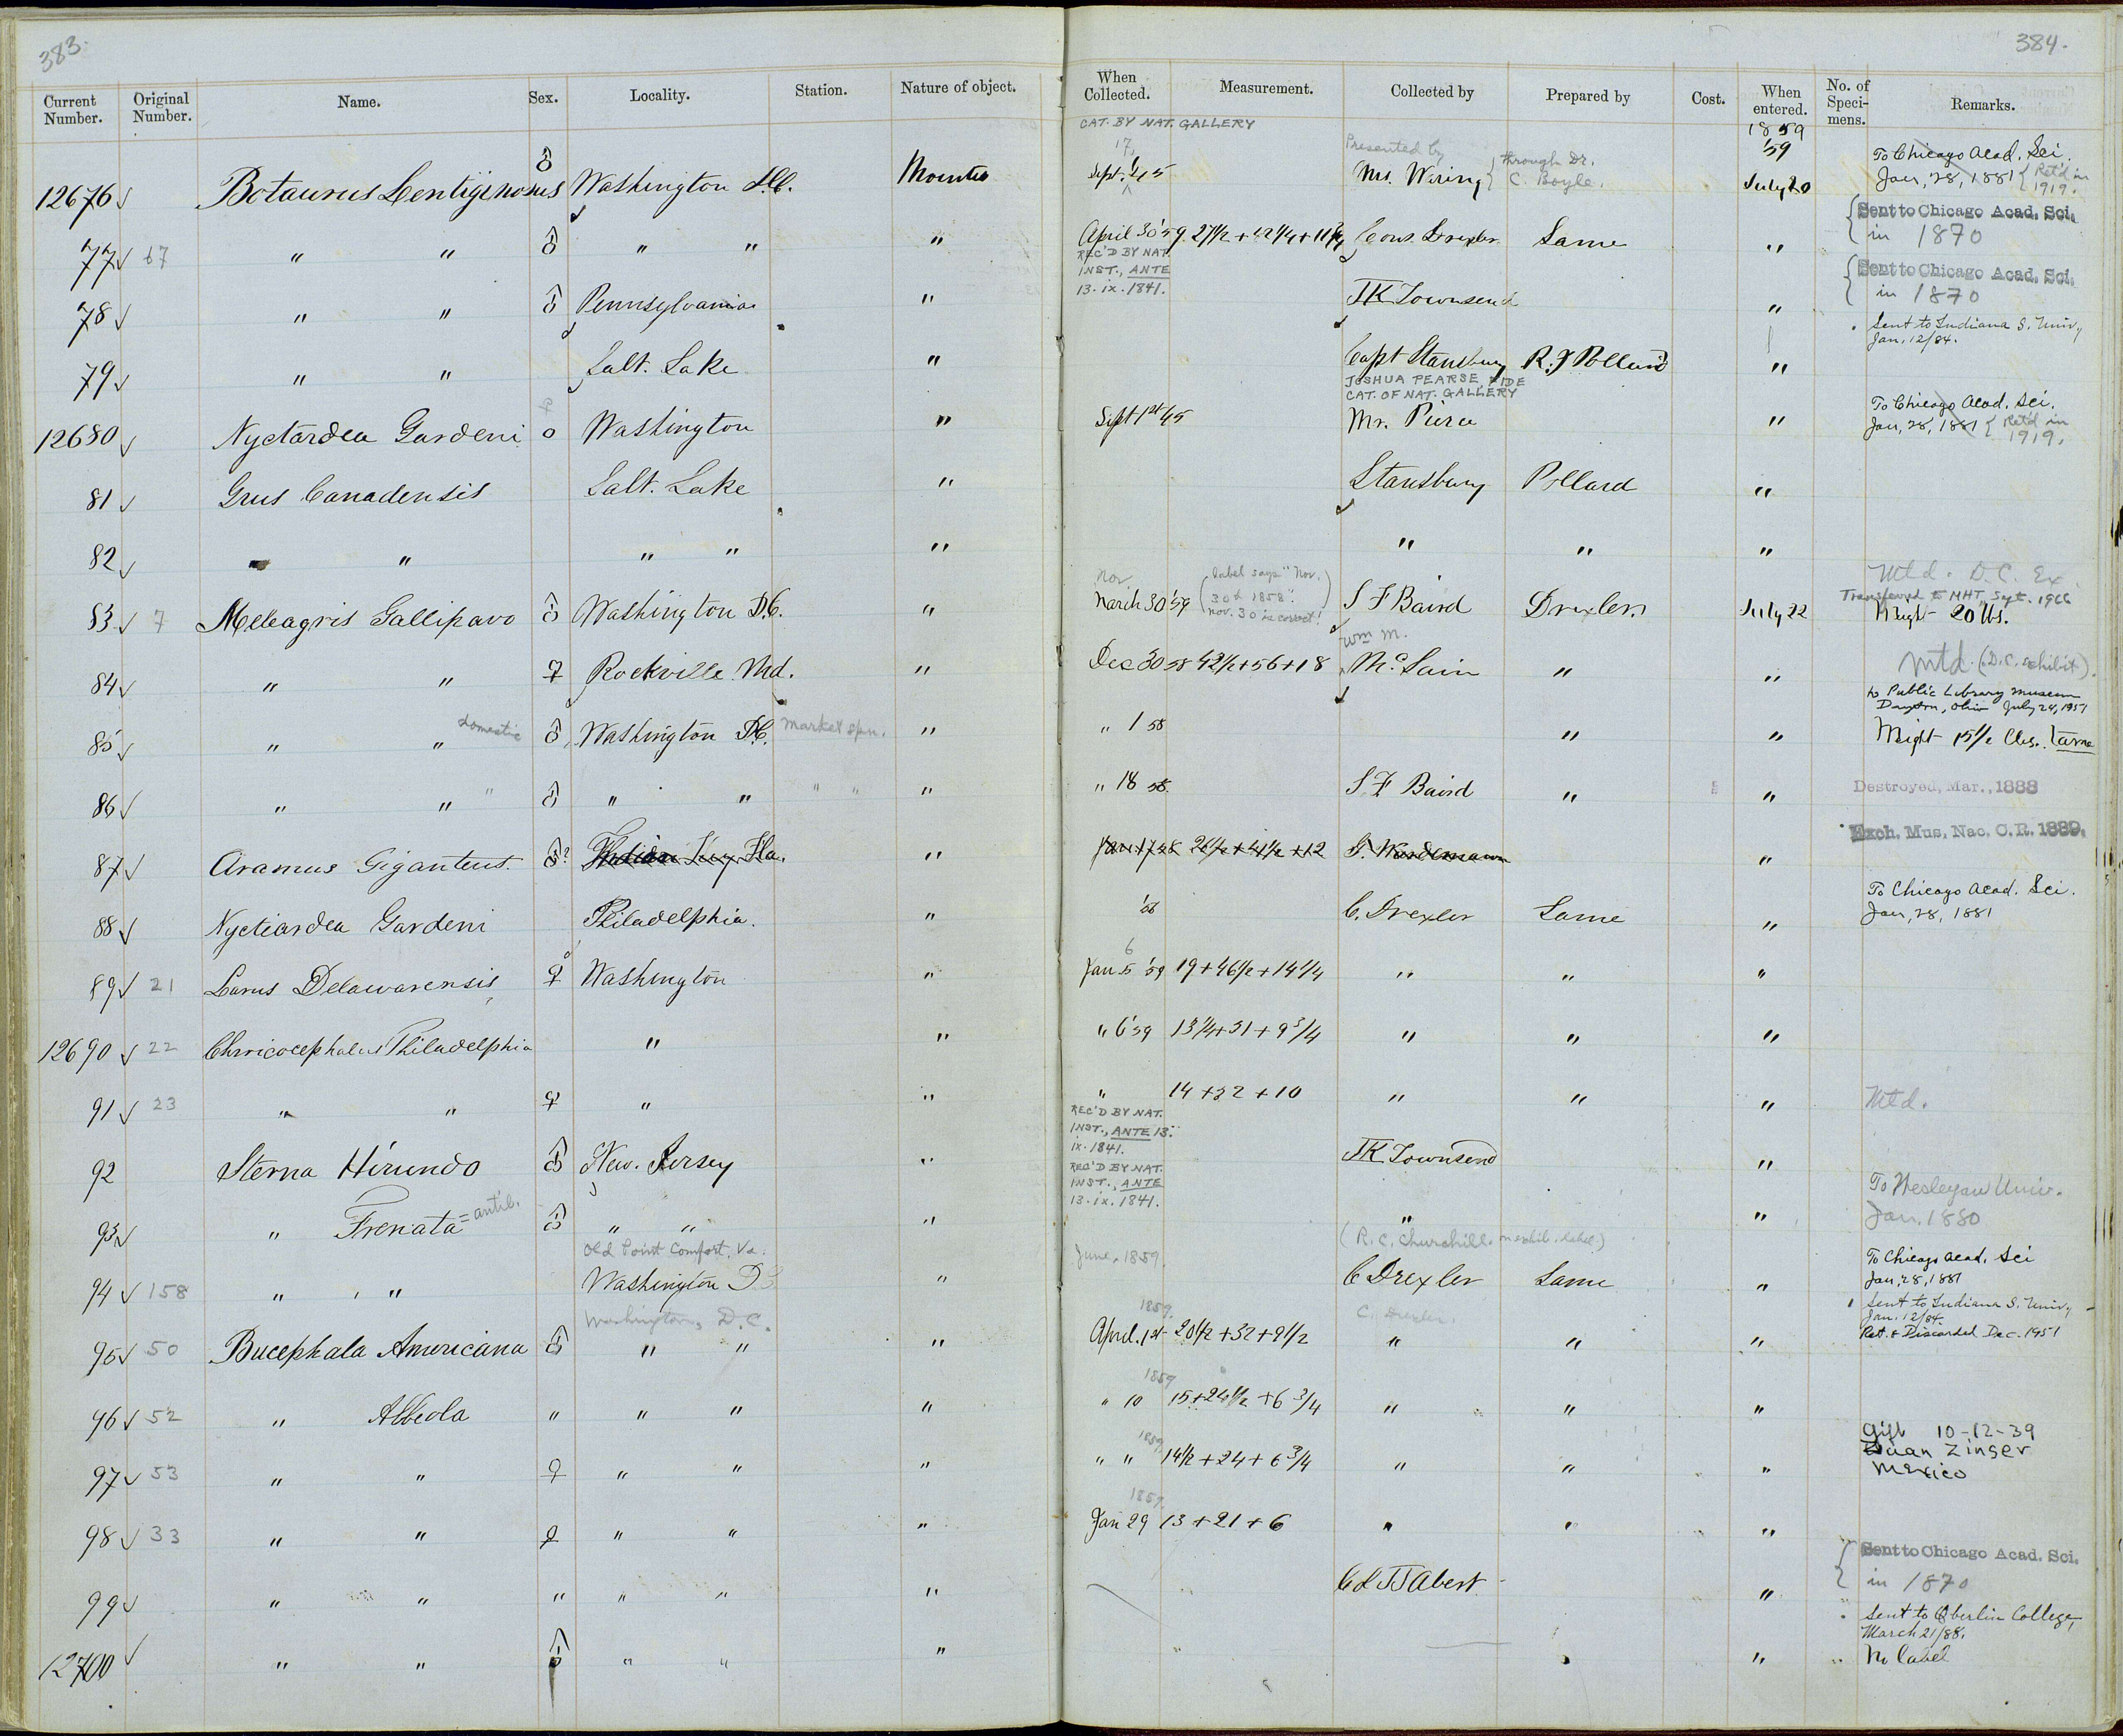 383.
384.
Current Number. Original Number. Name. Sex. Locality. Station. Nature of object. When Collected. Measurement. Collected by Prepared by Cost. When entered. No. of Speci- mens. Remarks.
CAT. BY NAT. GALLERY
1859
12676 ✓ Botaurus Lentiginosus ♂ Washington D.C. Mounted Sept. 17, 45 Presented by Mr. Waring } through Dr. C. Boyle. '59 July 20 To Chicago Acad. Sci. Jan, 28, 1881 { Ret'd in 1919.
77 ✓ 67 " " ♂ " " " April 30 '59 27 1/2 + 42 1/4 + 11 Cons. Drexler Same " { Sent to Chicago Acad. Sci. in 1870
REC'D BY NAT. INST., ANTE 13. ix. 1841.
78 ✓ " " ♂ Pennsylvania " JK Townsend " { Sent to Chicago Acad. Sci. in 1870
79 ✓ " " Salt. Lake " Capt Stansbury R. J Pollard " Sent to Indiana S. Univ, Jan, 12/84.
JOSHUA PEARSE, FIDE CAT. OF NAT. GALLERY
12680 ✓ Nyctardea Gardeni o Washington " Sept 1st 45 Mr. Pierce " To Chicago Acad. Sci. Jan, 28, 1881 { Ret'd in 1919.
81 ✓ Grus Canadensis Salt. Lake " Stansbury Pollard "
82 ✓ " " " " " " " "
83 ✓ 7 Meleagris Gallipavo ♂ Washington D.C. " Nov March 30 '59 (label says "Nov. 30th 1858". Nov. 30 is correct!) S F Baird Drexler July 22 Mtd. D.C. Ex. Transferred to MHT, Sept. 1966 Weight 20 lbs.
84 ✓ " " ♀ Rockville Md. " Dec 30 58 42 1/2 + 56 + 18 Wm M. McLain " " Mtd. (D.C. exhibit).
to Public Library Museum Dayton, Ohio July 24, 1951
85 ✓ " " domestic ♂ Washington D.C. Market spm. " " 1 58 " " Weight 15 1/2 lbs. Tame
86 ✓ " " " ♂ " " " " " " 18 58. S F Baird " " Destroyed, Mar., 1888
87 ✓ Aramus Giganteus. ♂? Indian Key Fla. " Jan 17 58 26 1/2 + 41 1/2 + 12 G. Wurdemann " Exch. Mus. Nac. C.R. 1889.
88 ✓ Nyctiardea Gardeni Philadelphia. " '58 C. Drexler Same " To Chicago Acad. Sci. Jan, 28, 1881
89 ✓ 21 Larus Delawarensis ♀ Washington " Jan 5 6 '59 19 + 46 1/2 + 14 1/4 " " "
12690 ✓ 22 Chroicocephalus Philadelphia " " " 6 '59 13 1/4 + 31 + 9 3/4 " " "
91 ✓ 23 " " ♀ " " " 14 + 32 + 10 " " " Mtd.
REC'D BY NAT. INST., ANTE 13. ix. 1841.
92 Sterna Hirundo ♂ New. Jersey " JK Townsend "
REC'D BY NAT. INST., ANTE 13. ix. 1841.
93 ✓ " Frenata = antil. ♂ " " " " " To Wesleyan Univ. Jan. 1880
Old Point Comfort, Va. June, 1859. (R. C. Churchill. on exhib. label)
94 ✓ 158 " " Washington D.C. " C Drexler Same " To Chicago Acad. Sci Jan, 28, 1881
Washington, D.C. 1859. C. Drexler.
95 ✓ 50 Bucephala Americana ♂ " " " April. 1st 20 1/2 + 32 + 9 1/2 " " " Sent to Indiana S. Univ, Jan. 12/84. Ret. & Discarded Dec. 1951
96 ✓ 52 " Albeola " " " " 1859 " 10 15 + 24 1/2 + 6 3/4 " " "
97 ✓ 53 " " ♀ " " " 1859 " " 14 1/2 + 24 + 6 3/4 " " " Gift 10-12-39 Juan Zinser Mexico
98 ✓ 33 " " ♀ " " " 1859. Jan 29 13 + 21 + 6 " " "
99 ✓ " " " " " " Col JJ Abert " { Sent to Chicago Acad. Sci. in 1870
12700 ✓ " " ♂ " " " " Sent to Oberlin College, March 21/88. No label